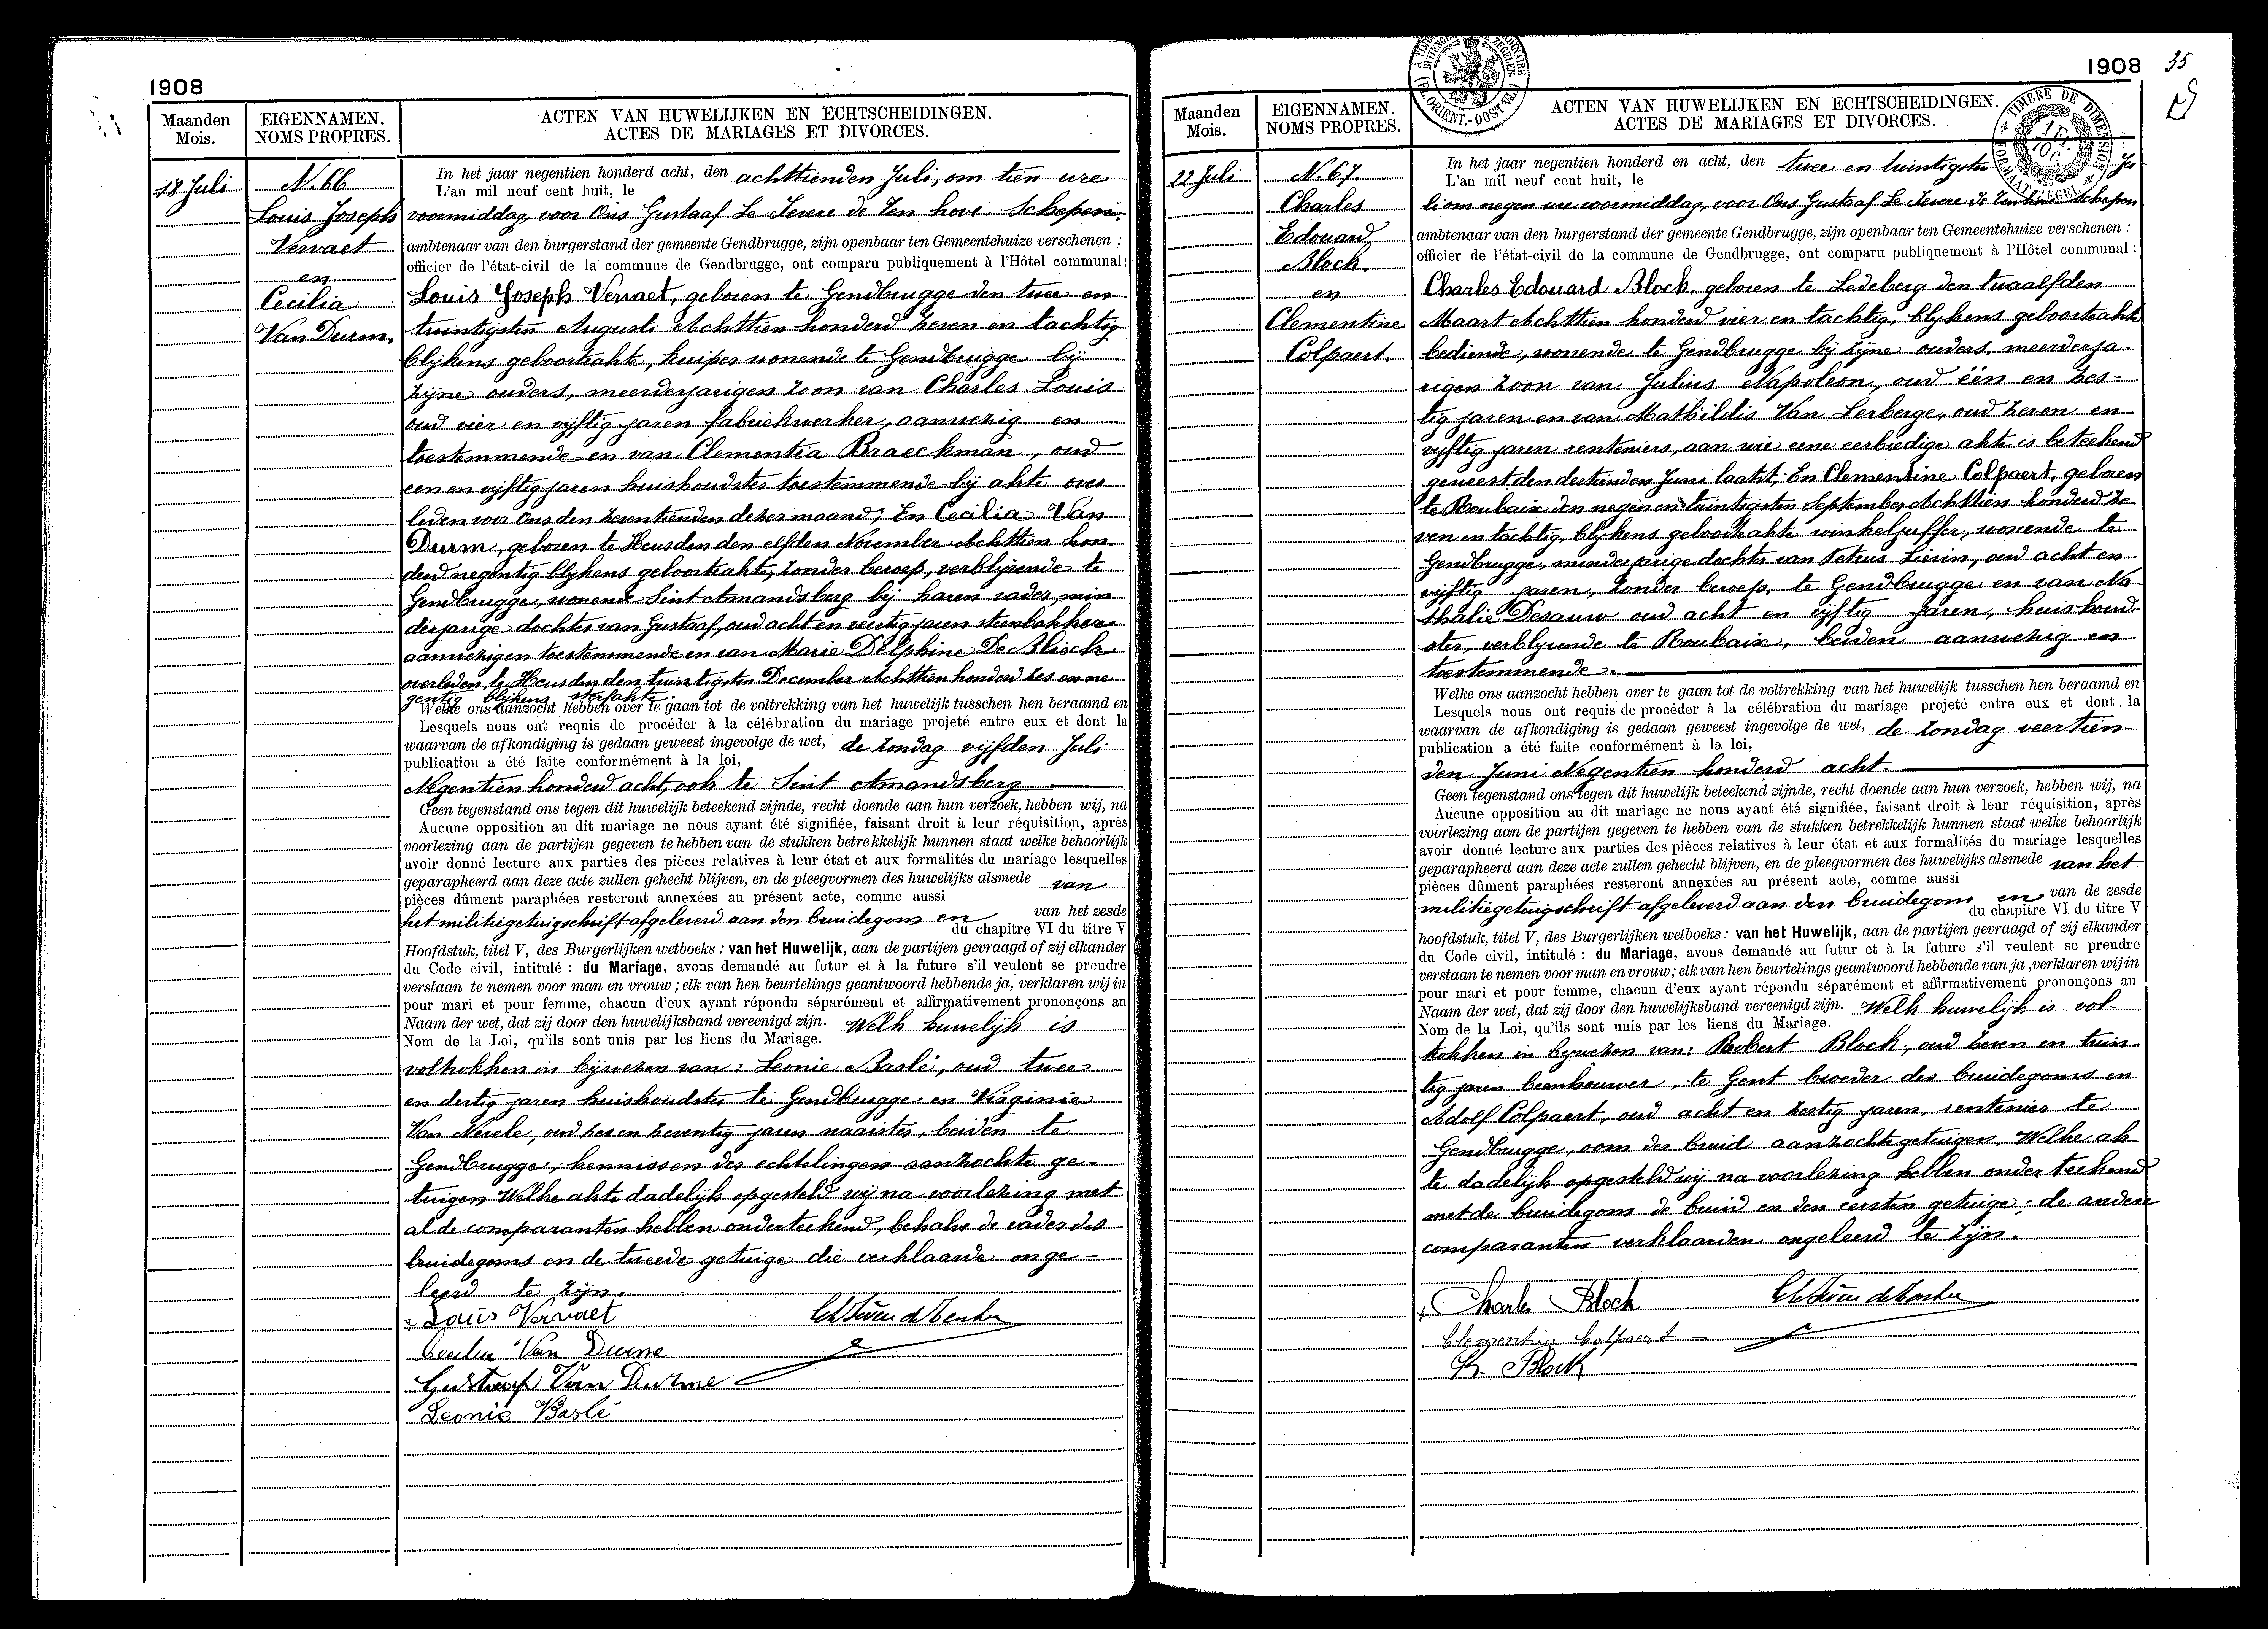 1908
Maanden
Mois.
EIGENNAMEN.
NOMS PROPRES.
ACTEN VAN HUWELIJKEN EN ECHTSCHEIDINGEN.
ACTES DE MARIAGES ET DIVORCES.
18 Juli
N. 66
Louis Joseph
Vervaet
en
Cecilia
Van Durm.
In het jaar negentien honderd acht, den achttienden Juli, om tien ure
L'an mil neuf cent huit, le
voormiddag, voor Ons Gustaaf Le Severe de Ten hove. Schepen.
ambtenaar van den burgerstand der gemeente Gendbrugge, zijn openbaar ten Gemeentehuize verschenen :
officier de l'état-civil de la commune de Gendbrugge, ont comparu publiquement à l'Hôtel communal:
Louis Joseph Vervaet, geboren te Gendbrugge den twee en
twintigsten Augusti Achttien honderd zeven en tachtig
blijkens geboorteakte, kuiper wonende te Gendbrugge bij
zijne ouders, meerderjarigen zoon van Charles Louis
oud vier en vijftig jaren fabriekwerker, aanwezig en
toestemmende en van Clementia Braeckman, oud
een en vijftig jaren huishoudster toestemmende bij akte over-
leden voor Ons den zeventienden dezer maand; En Cecilia Van
Durm, geboren te Heusden den elfden November Achttien hon-
derd negentig blijkens geboorteakte, zonder beroep, verblijvende te
Gendbrugge, wonende Sint Amandsberg bij haren vader, min
derjarige dochter van Gustaaf, oud acht en veertig jaren steenbakker
aanwezig en toestemmende en van Marie Delphine De Blieck
overleden te Heusden den twintigsten December Achttien honderd zes en ne
gentig blijkens sterfakte.
Welke ons aanzocht hebben over te gaan tot de voltrekking van het huwelijk tusschen hen beraamd en
Lesquels nous ont requis de procéder à la célébration du mariage projeté entre eux et dont la
waarvan de afkondiging is gedaan geweest ingevolge de wet, de zondag vijfden Juli
publication a été faite conformément à la loi,
Negentien honderd acht, ook te Sint Amandsberg
Geen tegenstand ons tegen dit huwelijk beteekend zijnde, recht doende aan hun verzoek, hebben wij, na
Aucune opposition au dit mariage ne nous ayant été signifiée, faisant droit à leur réquisition, après
voorlezing aan de partijen gegeven te hebben van de stukken betrekkelijk hunnen staat welke behoorlijk
avoir donné lecture aux parties des pièces relatives à leur état et aux formalités du mariage lesquelles
geparapheerd aan deze acte zullen gehecht blijven, en de pleegvormen des huwelijks alsmede van
pièces dûment paraphées resteront annexées au présent acte, comme aussi
het militiegetuigschrift afgeleverd aan den bruidegom en van het zesde
du chapitre VI du titre V
Hoofdstuk, titel V, des Burgerlijken wetboeks : van het Huwelijk, aan de partijen gevraagd of zij elkander
du Code civil, intitulé : du Mariage, avons demandé au futur et à la future s'il veulent se prendre
verstaan te nemen voor man en vrouw ; elk van hen beurtelings geantwoord hebbende ja, verklaren wij in
pour mari et pour femme, chacun d'eux ayant répondu séparément et affirmativement prononçons au
Naam der wet, dat zij door den huwelijksband vereenigd zijn. Welk huwelijk is
Nom de la Loi, qu'ils sont unis par les liens du Mariage.
voltrokken in bijwezen van : Leonie Baslé, oud twee
en dertig jaren huishoudster te Gendbrugge en Virginie
Van Nevele, oud zes en zeventig jaren naaister, beiden te
Gendbrugge, kennissen der echtelingen aanzochte ge-
tuigen Welke akte dadelijk opgesteld wij na voorlezing met
al de comparanten hebben onderteekend, behalve de vader des
bruidegoms en de tweede getuige die verklaarde onge-
leerd te zijn.
Louis Vervaet
Cecilia Van Durme
Gustaaf Van Durme
Leonie Baslé
1908
35
Maanden
Mois.
EIGENNAMEN.
NOMS PROPRES.
ACTEN VAN HUWELIJKEN EN ECHTSCHEIDINGEN.
ACTES DE MARIAGES ET DIVORCES.
TIMBRE DE DIMENSION
22 Juli
N. 67.
Charles
Edouard
Bloch.
en
Clementine
Colpaert.
In het jaar negentien honderd en acht, den twee en twintigsten Ju
L'an mil neuf cent huit, le
li om negen ure voormiddag, voor Ons Gustaaf Le Severe de Ten hove Schepen
ambtenaar van den burgerstand der gemeente Gendbrugge, zijn openbaar ten Gemeentehuize verschenen :
officier de l'état-civil de la commune de Gendbrugge, ont comparu publiquement à l'Hôtel communal :
Charles Edouard Bloch, geboren te Ledeberg den twaalfden
Maart Achttien honderd vier en tachtig, blijkens geboorteakte
bediende, wonende te Gendbrugge bij zijne ouders, meerderja-
rigen zoon van Julius Napoleon, oud één en zes-
tig jaren en van Mathildis Van Lerberge, oud zeven en
vijftig jaren renteniers, aan wie eene eerbiedige akte is beteekend
geweest den dertienden Juni laatst; En Clementine Colpaert, geboren
te Roubaix den negen en twintigsten September Achttien honderd ze
ven en tachtig, blijkens geboorteakte winkeljuffer, wonende te
Gendbrugge, minderjarige dochter van Petrus Lievin, oud acht en
vijftig jaren, zonder beroep, te Gendbrugge en van Na
thalie Desauw oud acht en vijftig jaren, huishoud-
ster, verblijvende te Roubaix, beiden aanwezig en
toestemmende.
Welke ons aanzocht hebben over te gaan tot de voltrekking van het huwelijk tusschen hen beraamd en
Lesquels nous ont requis de procéder à la célébration du mariage projeté entre eux et dont la
waarvan de afkondiging is gedaan geweest ingevolge de wet, de zondag veertien-
publication a été faite conformément à la loi,
den Juni Negentien honderd acht.
Geen tegenstand ons tegen dit huwelijk beteekend zijnde, recht doende aan hun verzoek, hebben wij, na
Aucune opposition au dit mariage ne nous ayant été signifiée, faisant droit à leur réquisition, après
voorlezing aan de partijen gegeven te hebben van de stukken betrekkelijk hunnen staat welke behoorlijk
avoir donné lecture aux parties des pièces relatives à leur état et aux formalités du mariage lesquelles
geparapheerd aan deze acte zullen gehecht blijven, en de pleegvormen des huwelijks alsmede van het
pièces dûment paraphées resteront annexées au présent acte, comme aussi
militiegetuigschrift afgeleverd aan den bruidegom en van de zesde
du chapitre VI du titre V
hoofdstuk, titel V, des Burgerlijken wetboeks : van het Huwelijk, aan de partijen gevraagd of zij elkander
du Code civil, intitulé : du Mariage, avons demandé au futur et à la future s'il veulent se prendre
verstaan te nemen voor man en vrouw ; elk van hen beurtelings geantwoord hebbende van ja, verklaren wij in
pour mari et pour femme, chacun d'eux ayant répondu séparément et affirmativement prononçons au
Naam der wet, dat zij door den huwelijksband vereenigd zijn. Welk huwelijk is vol-
Nom de la Loi, qu'ils sont unis par les liens du Mariage.
trokken in bijwezen van: Robert Bloch, oud zeven en twin-
tig jaren beenhouwer, te Gent broeder des bruidegoms en
Adolf Colpaert, oud acht en zestig jaren, rentenier te
Gendbrugge, oom der bruid aanzochte getuigen. Welke ak-
te dadelijk opgesteld wij na voorlezing hebben onderteekend
met de bruidegom de bruid en den eersten getuige; de andere
comparanten verklaarden ongeleerd te zijn.
Charles Bloch
Clementine Colpaert
R. Bloch